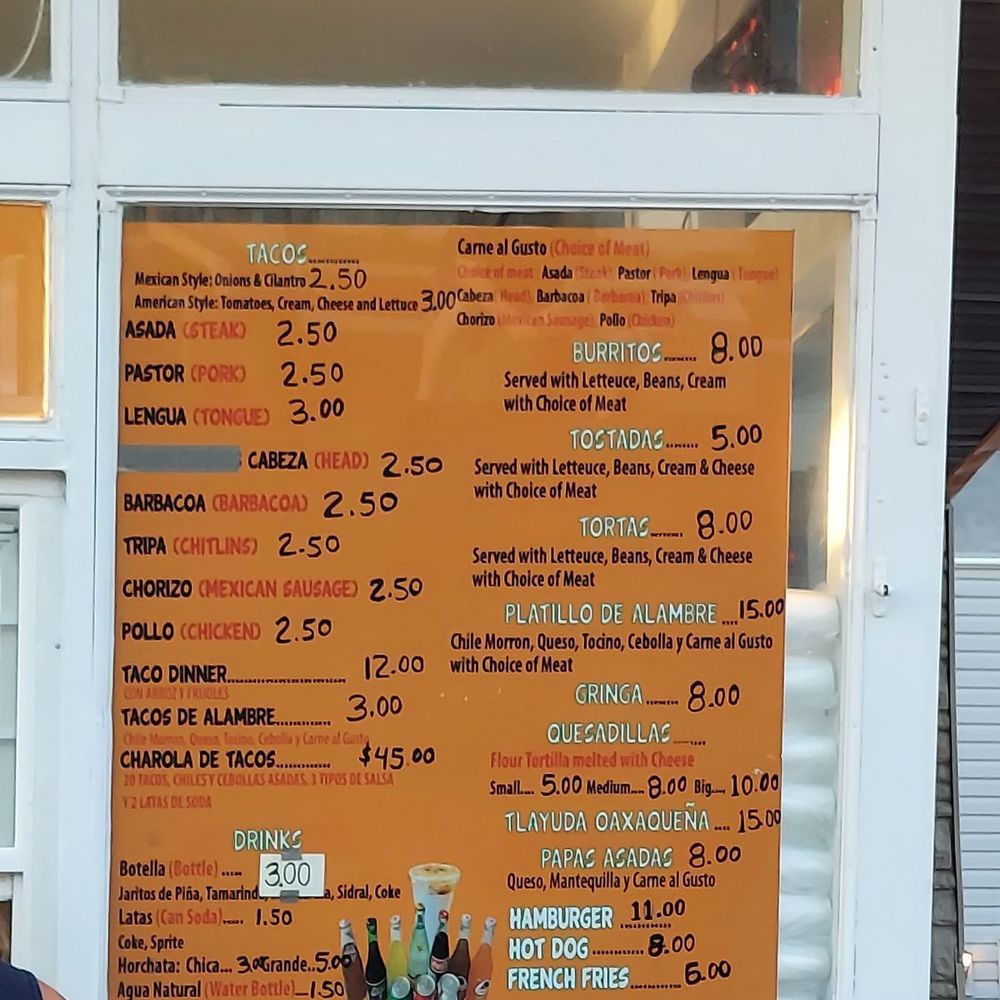 TACOS..........
Mexican Style: Onions & Cilantro 2.50
American Style: Tomatoes, Cream, Cheese and Lettuce 3.00
ASADA (STEAK) 2.50
PASTOR (PORK) 2.50
LENGUA (TONGUE) 3.00
CABEZA (HEAD) 2.50
BARBACOA (BARBACOA) 2.50
TRIPA (CHITLINS) 2.50
CHORIZO (MEXICAN SAUSAGE) 2.50
POLLO (CHICKEN) 2.50
TACO DINNER.......................... 12.00
CON ARROZ Y FRIJOLES
TACOS DE ALAMBRE............ 3.00
Chile Morron, Queso, Tocino, Cebolla y Carne al Gusto
CHAROLA DE TACOS............ $45.00
20 TACOS, CHILES Y CEBOLLAS ASADAS, 3 TIPOS DE SALSA
Y 2 LATAS DE SODA
DRINKS
Botella (Bottle) ..... 3.00
Jaritos de Piña, Tamarind a, Sidral, Coke
Latas (Can Soda)..... 1.50
Coke, Sprite
Horchata: Chica... 3.00 Grande..5.00
Agua Natural (Water Bottle)...1.50
Carne al Gusto (Choice of Meat)
Choice of meat Asada (Steak) Pastor (Pork) Lengua (Tongue)
Cabeza (Head) Barbacoa (Barbacoa) Tripa (Chitlins)
Chorizo (Mexican Sausage) Pollo (Chicken)
BURRITOS....... 8.00
Served with Letteuce, Beans, Cream
with Choice of Meat
TOSTADAS....... 5.00
Served with Letteuce, Beans, Cream & Cheese
with Choice of Meat
TORTAS....... 8.00
Served with Letteuce, Beans, Cream & Cheese
with Choice of Meat
PLATILLO DE ALAMBRE ....15.00
Chile Morron, Queso, Tocino, Cebolla y Carne al Gusto
with Choice of Meat
GRINGA....... 8.00
QUESADILLAS .......
Flour Tortilla melted with Cheese
Small.... 5.00 Medium.... 8.00 Big.... 10.00
TLAYUDA OAXAQUEÑA .... 15.00
PAPAS ASADAS 8.00
Queso, Mantequilla y Carne al Gusto
HAMBURGER .......... 11.00
HOT DOG ............ 8.00
FRENCH FRIES ......... 6.00